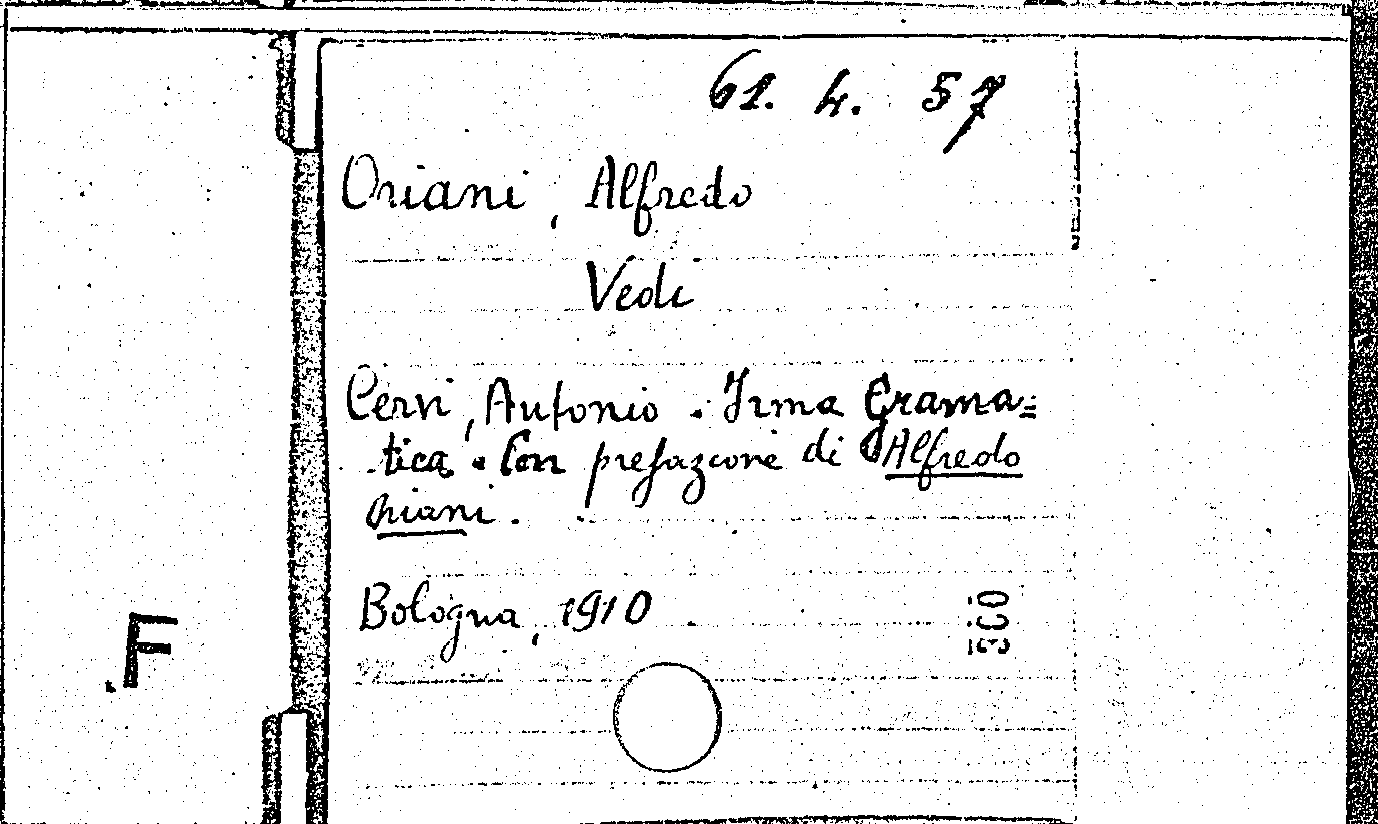 61. 4. 57
Oriani, Alfredo
Vedi
Cervi, Antonio. Irma Grama=
tica. Con prefazione di Alfredo
Oriani.
Bologna, 1910
F